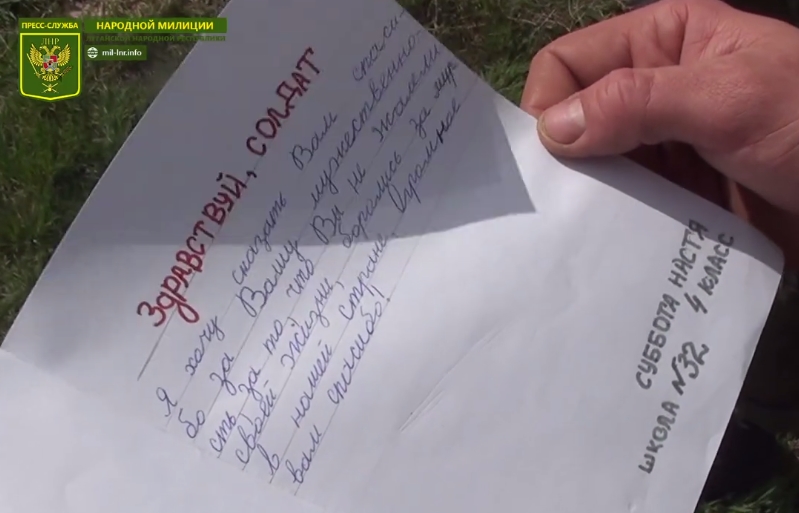 ПРЕСС-СЛУЖБА
НАРОДНОЙ МИЛИЦИИ
ЛУГАНСКОЙ НАРОДНОЙ РЕСПУБЛИКИ
ЛНР
mil-lnr.info
ЗДРАВСТВУЙ, СОЛДАТ
Я хочу сказать Вам спаси-
бо за Вашу мужественно-
сть за то, что Ви не жалели
своей жизни, боролись за мир
в нашей стране, огромное
вам спасибо!
СУББОТА НАСТЯ
ШКОЛА №32 4 КЛАСС